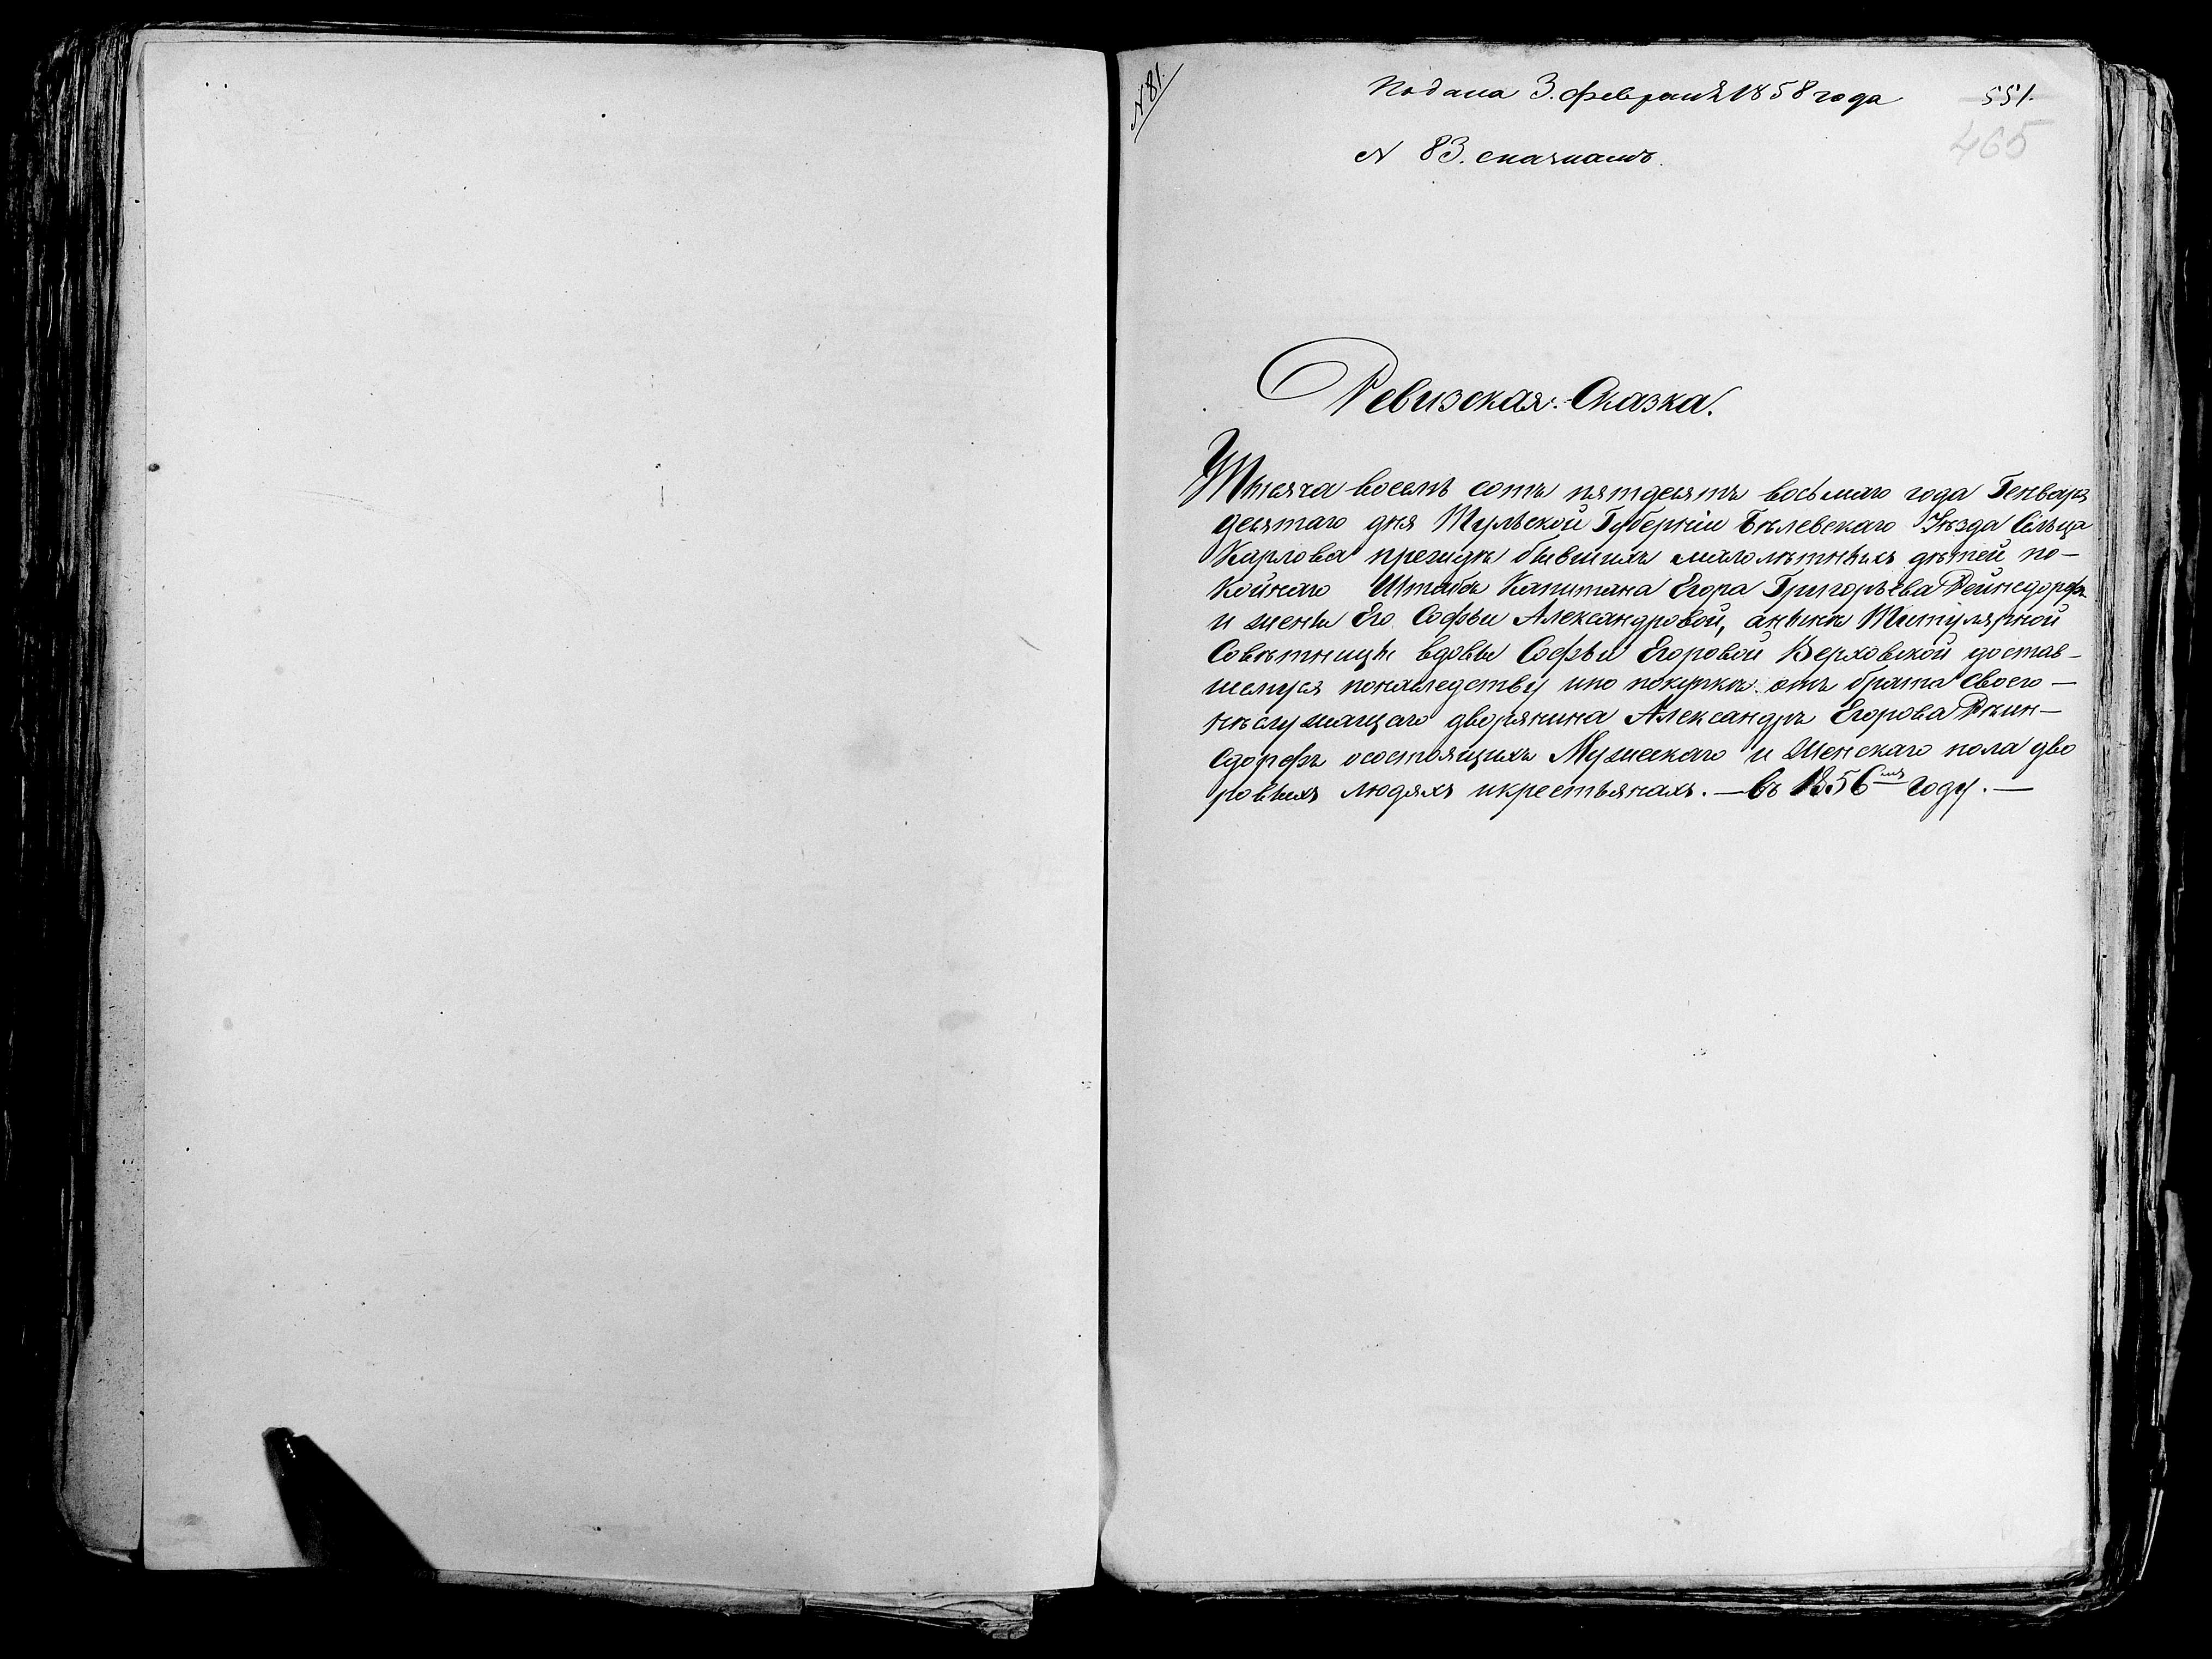 N 81.
Подана 3. февраля 1858 года
551.
465
N 83.
Ревизская Сказка.
Тысяча восемь сотъ пятдесятъ восьмаго года Генваря
десятаго дня Тульской Губерніи Бѣлевскаго Уѣзда Сельца
Карлова прежде бывшихъ малолѣтныхъ дѣтей по-
койнаго Штабъ Капитана Егора Григорьева Рейнсдорфъ
и жены Его Софьи Александровой, анынѣ Титулярной
Совѣтницы вдовы Софьи Егоровой Верховской достав-
шемуся понаследству ипо покупкѣ отъ брата своего —
нѣслужащаго дворянина Александра Егорова Рѣин-
сдорфъ осостоящихъ Мужескаго и Женскаго пола дво
ровыхъ людяхъ икрестьянахъ. — въ 1856 году. —